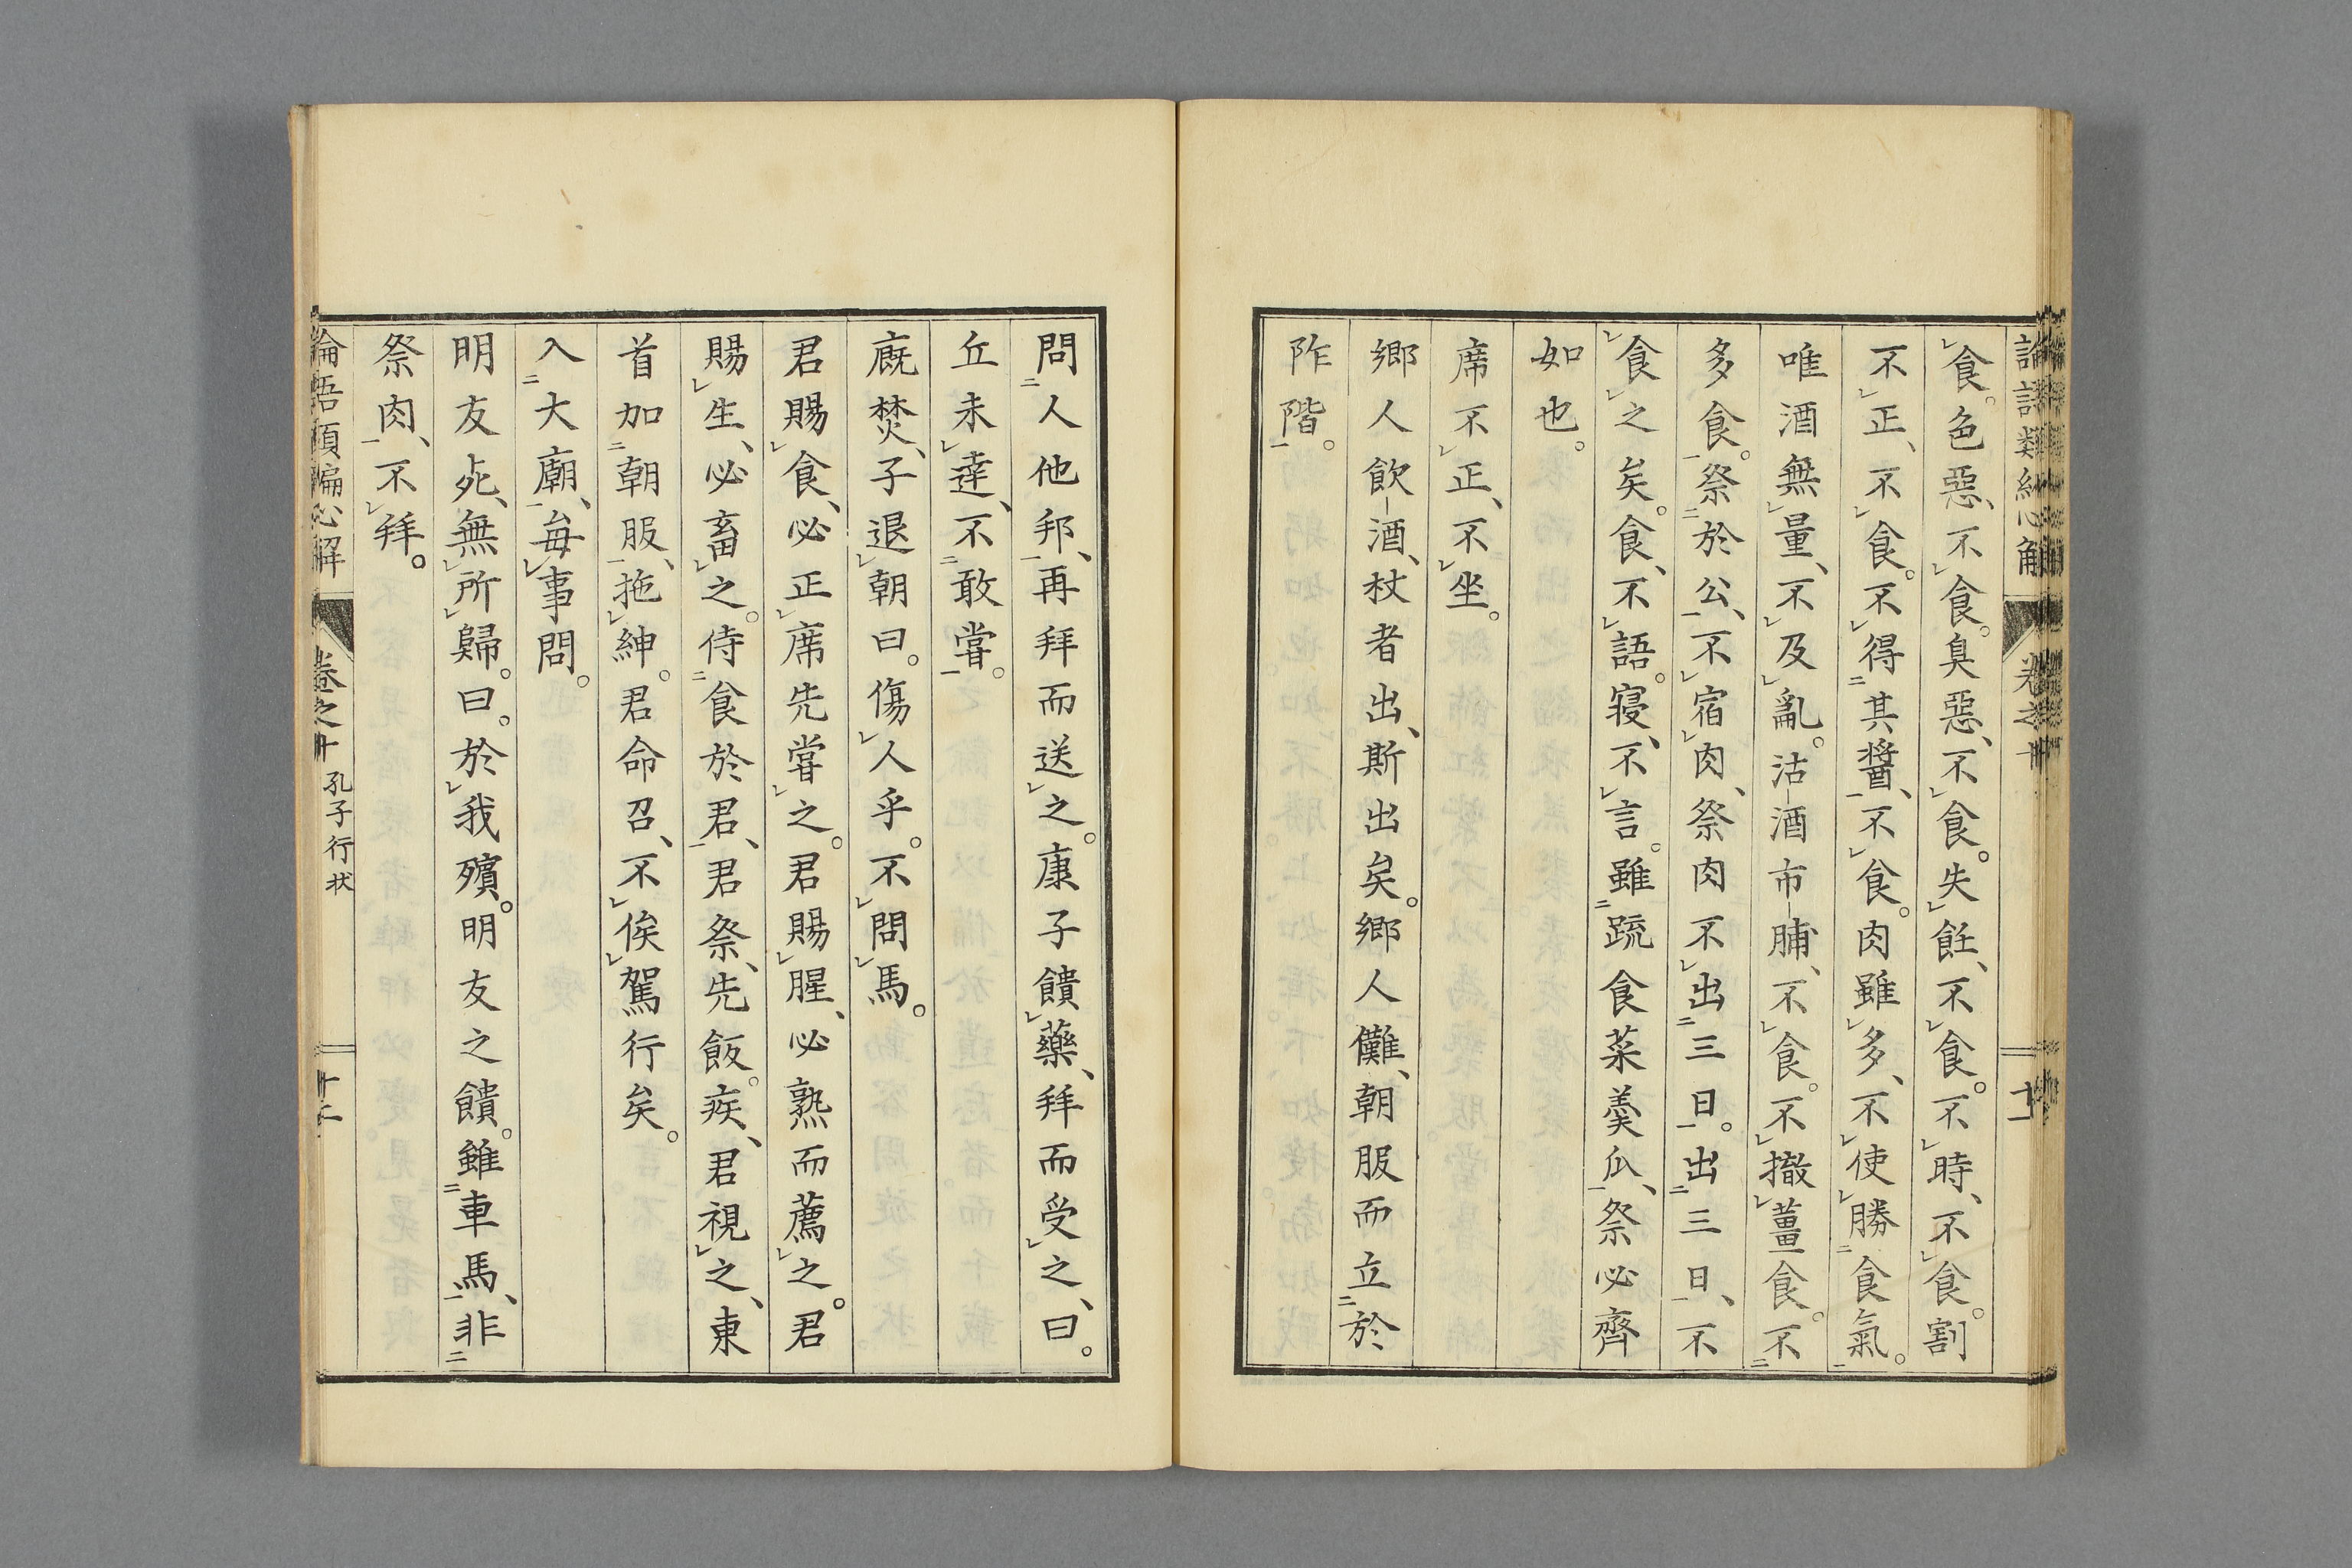 食。色惡、不食。臭惡、不食。失飪、不食。不時、不食。割
不正、不食。不得其醬、不食。肉雖多、不使勝食氣。
唯酒無量、不及亂。沽酒市脯、不食。不撤薑食。不
多食。祭於公、不宿肉、祭肉不出三日。出三日、不
食之矣。食、不語。寝、不言。雖疏食菜羹瓜、祭必齊
如也。
席不正、不坐。
鄉人飲酒、杖者出、斯出矣。鄉人儺、朝服而立於
阼階。
問人他邦、再拜而送之。康子饋藥、拜而受之、曰。
丘未達、不敢嘗。
廐焚、子退朝曰。傷人乎。不問馬。
君賜食、必正席先嘗之。君賜腥、必熟而薦之。君
賜生、必畜之。侍食於君、君祭、先飯。疾、君視之、東
首加朝服、拖紳。君命召、不俟駕行矣。
入大廟、每事問。
明友死、無所歸。曰。於我殯。明友之饋。雖車馬、非
祭肉、不拜。
卷之十 孔子行状
十二